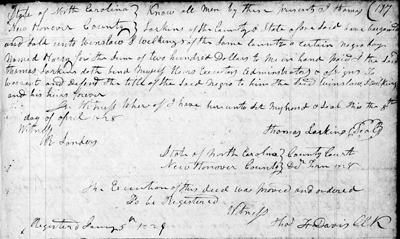 State of North Carolina } Know all men by these presents I Thomas (197
New Honover County } Larkins of the County & State afore said have bargained
and sold unto Winslow S Wilkings of the same County a certain negro boy
Named Harry for the sum of two hundred Dollars to me in hand paid I the said
Thomas Larkins doth bind myself Heirs Executors Administrators & assigns to
warant and defend the title of the said negro to him the said Winslow S Wilkings
and his heirs forever
In Witness where of I have hereunto set my hand & seal this the 8th
day of April 1828
Witness Thomas Larkins (Seal)
Sanders
State of North Carolina } County Court
New Honover County } Term 1828
The Execution of this deed was proved and ordered
to be Registered
Witness
Registered Jany 5th 1829 Thos F Davis Clk